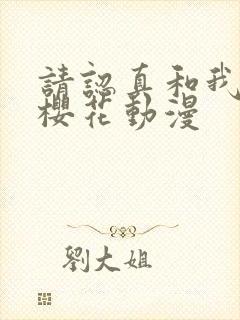 請認真和我
櫻花動漫
劉大姐